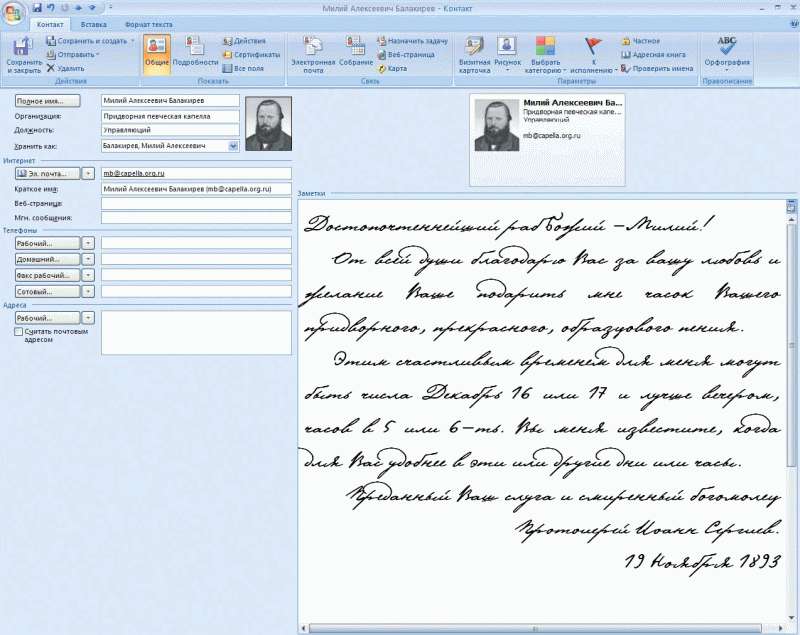 Милий Алексеевич Балакирев - Контакт
Контакт Вставка Формат текста
Сохранить и закрыть
Сохранить и создать
Отправить
Удалить
Действия
Общие
Подробности
Действия
Сертификаты
Все поля
Показать
Электронная почта
Собрание
Назначить задачу
Веб-страница
Карта
Связь
Визитная карточка
Рисунок
Выбрать категорию
К исполнению
Частное
Адресная книга
Проверить имена
Параметры
ABC
Орфография
Правописание
Полное имя... Милий Алексеевич Балакирев
Организация: Придворная певческая капелла
Должность: Управляющий
Хранить как: Балакирев, Милий Алексеевич
Интернет
Эл. почта... mb@capella.org.ru
Краткое имя: Милий Алексеевич Балакирев (mb@capella.org.ru)
Веб-страница:
Мгн. сообщения:
Телефоны
Рабочий...
Домашний...
Факс рабочий...
Сотовый...
Адреса
Рабочий...
Считать почтовым
адресом
Милий Алексеевич Ба...
Придворная певческая капе...
Управляющий
mb@capella.org.ru
Заметки
Достопочтеннейший раб Божий – Милий!
От всей души благодарю Вас за вашу любовь и
желание Ваше подарить мне часок Вашего
придворного, прекрасного, образцового пения.
Этим счастливым временем для меня могут
быть числа Декабрь 16 или 17 и лучше вечером,
часов в 5 или 6-ть. Вы меня известите, когда
для Вас удобнее в эти или другие дни или часы.
Преданный Ваш слуга и смиренный богомолец
Протоиерей Иоанн Сергиев.
19 Ноября 1893